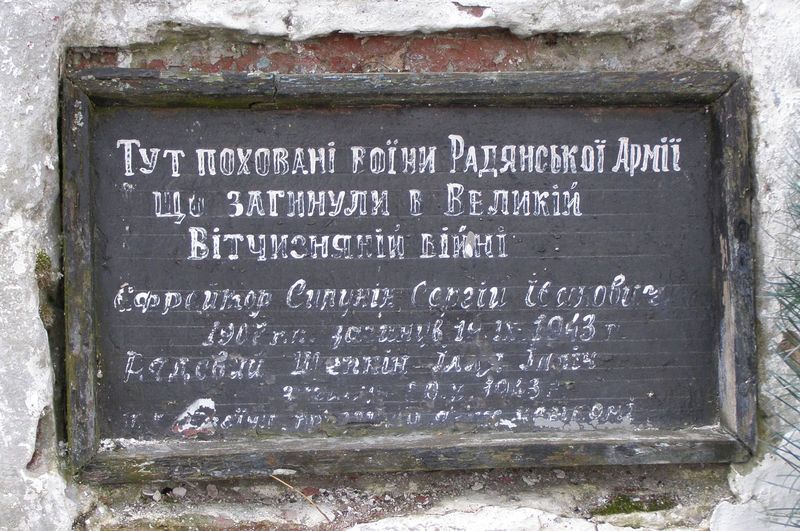 Тут поховані воїни Радянської Армії
Що загинули в Великій
Вітчизняній війні
Єфрейтор Сипунін Сергій Ісакович
1907 р.н. загинув 14 IX 1943 р
Рядовий Щепкін Ілля Ілліч
1943 р